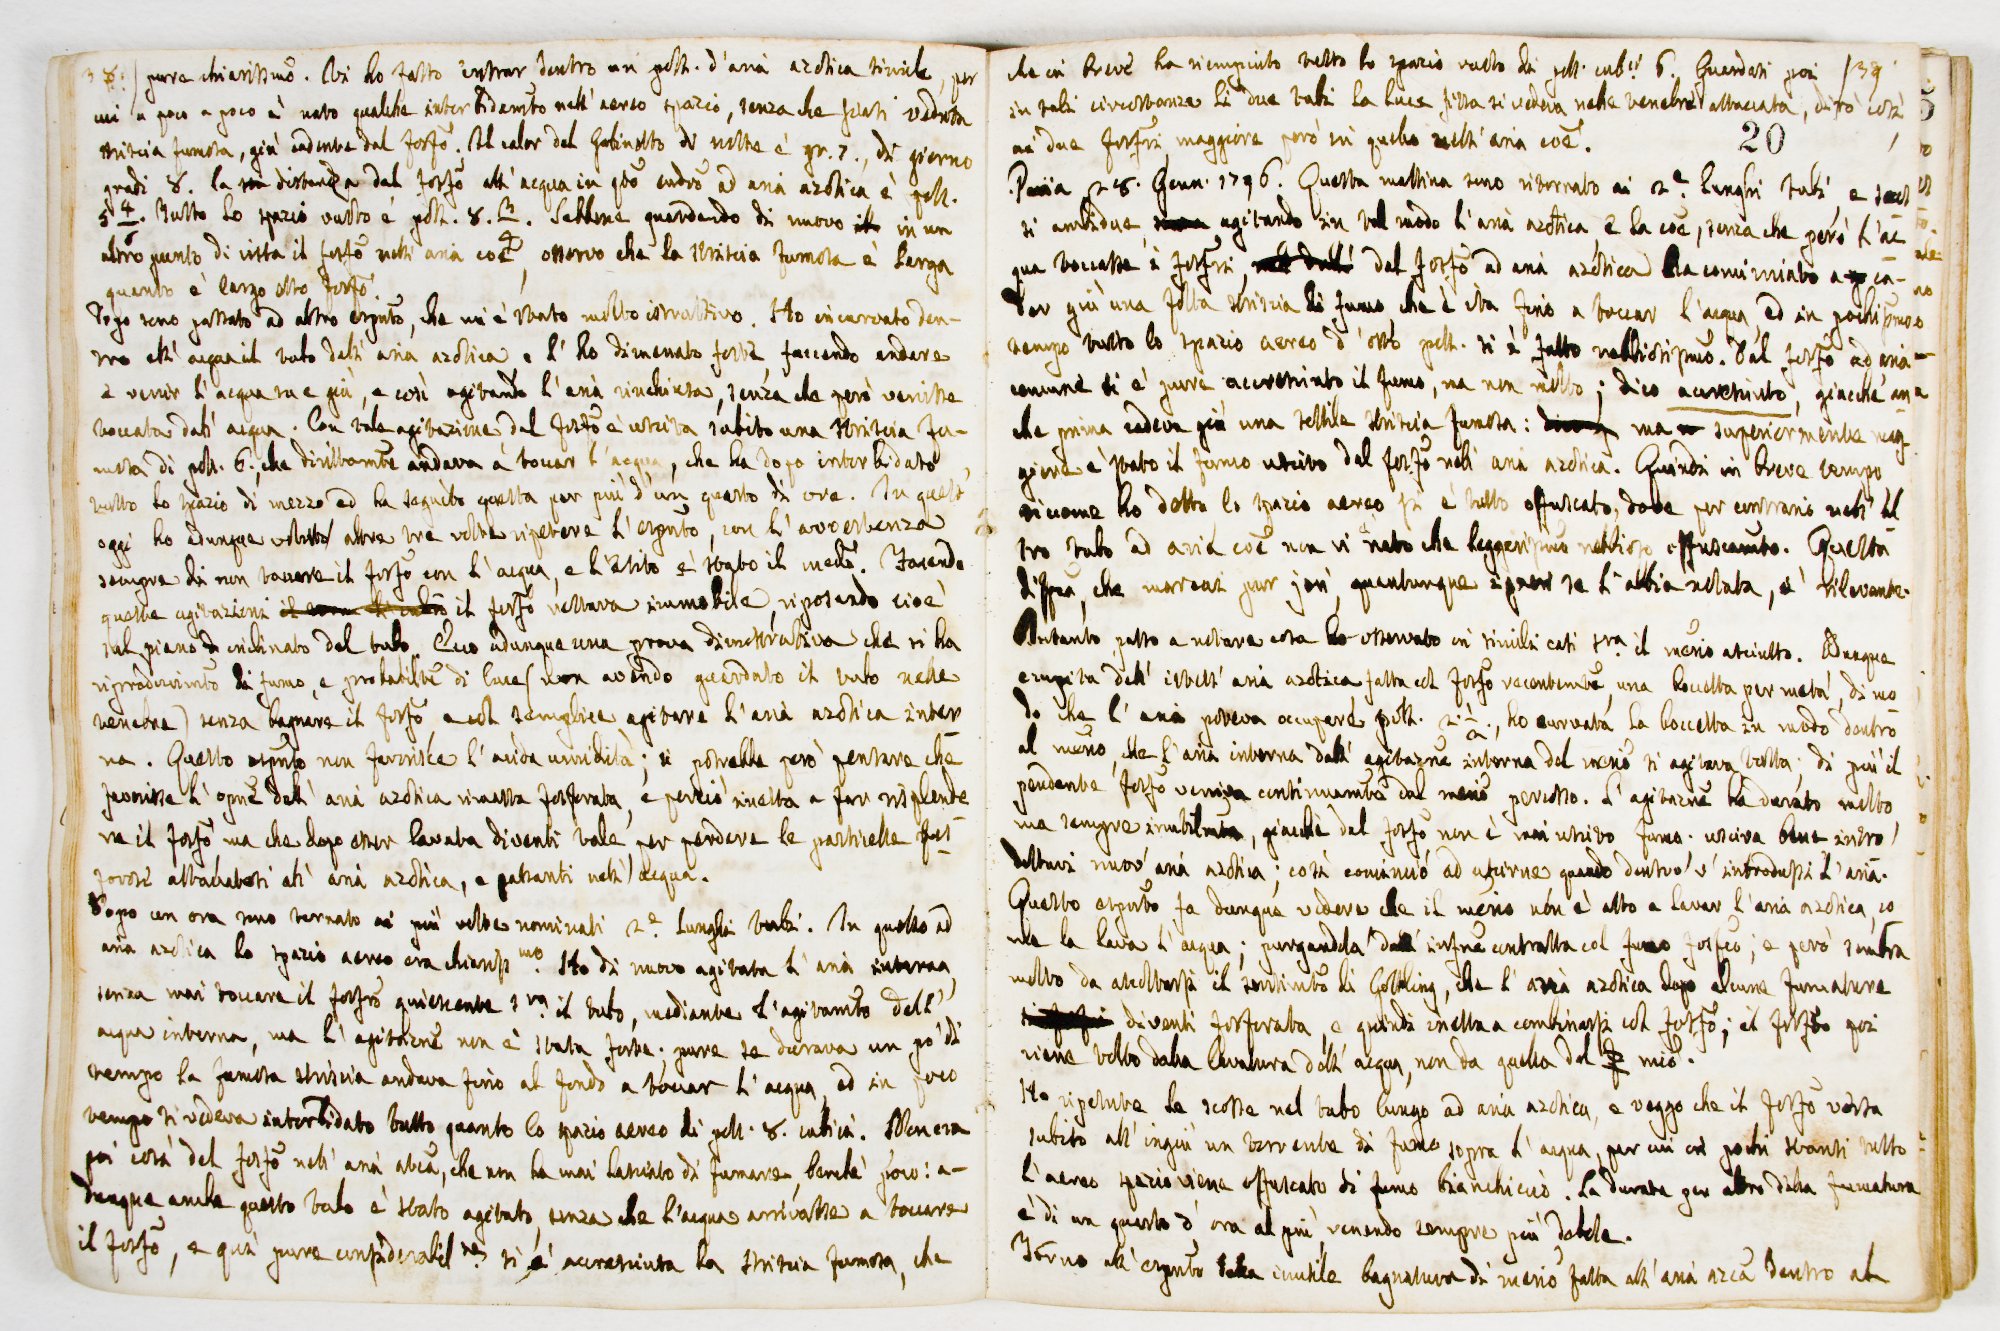 38:) pure chiarissimo. Vi ho fatto entrar dentro un poll. d'aria azotica simile, per
cui a poco a poco è nato qualche intorbidamto nell'aereo spazio, senza che siasi veduta
striscia fumosa, giù cadente dal fosfo. Il calor del Gabinetto di notte è gr. 7., di giorno
gradi 8. La distanza dal fosfo all'acqua in qto entro ad aria azotica è poll.
5 4/6. Tutto lo spazio vuoto è poll. 8. Sebbene guardando di nuovo in un
altro punto di vista il fosfo nell'aria coe, osservo che la striscia fumosa è larga
quanto è largo esto fosfo.
Dopo sono passato ad altro espto, che m'è stato molto istruttivo. Ho incurvato den-
tro all'acqua il tubo dell'aria azotica e l'ho dimenato forte facendo andare
e venir l'acqua su e giù, e così agitando l'aria rinchiusa, senza che però venisse
toccato dall'acqua. Con tale agitazione dal fosfo è uscita subito una striscia fu-
mosa di poll. 6., che dirittamte andava a toccar l'acqua, che ha dopo intorbidato
tutto lo spazio di mezzo ed ha seguito questa per più d'un quarto di ora. In quest'
oggi ho adunque voluto altre tre volte ripetere l'espto, con l'avvertenza
sempre di non toccare il fosfo con l'acqua, e l'esito è stato il medo. Facendo
queste agitazioni il fosfo restava immobile, riposando cioè
sul piano inclinato del tubo. Ecco adunque una prova dimostrativa che si ha
riproducimto di fumo, e probabilte di luce (non avendo guardato il tubo nelle
tenebre) senza bagnare il fosfo, e col semplice agitare l'aria azotica inter
na. Questo espto non favorisce l'acida umidità; si potrebbe però pensare che
favorisse l'opne dell'aria azotica rimasta fosforata, e perciò inetta a far risplende
re il fosfo ma che dopo esser lavata diventi tale per perdere le particelle fos-
foree attaccatesi all'aria azotica, e passanti nell'acqua.
Dopo un ora sono tornato ai più volte nominati 2e lunghi tubi. In quello ad
aria azotica lo spazio aereo era chiarissmo. Ho di nuovo agitata l'aria interna,
senza mai toccare il fosfo quiescente sra il tubo, mediante l'agitamto dell'
acqua interna, ma l'agitazione non è stata forte. pure se durava un po' di
tempo la fumosa striscia andava fino al fondo a toccar l'acqua, ed in poco
tempo si vedeva intorbidato tutto quanto lo spazio aereo di poll. 8. cubici. Non era
poi così del fosfo nell'aria atca, che non ha mai lasciato di fumare, benchè poco: a-
dunque anche questo tubo è stato agitato, senza che l'acqua arrivasse a toccare
il fosfo, e quì pure considerabilne si è accresciuta la striscia fumosa, che
che in breve ha riempiuto tutto lo spazio vuoto di poll. cubci 6. Guardati poi (39
in tali circostanze li due tubi la luce fissa si vedeva nelle tenebre attaccata, dirò così
ai due fosfri, maggiore però in quello nell'aria coe.
20
Pavia 28. Genn. 1796. Questa mattina sono ritornato ai 2e lunghi tubi, e
si ambidue, agitando in tal modo l'aria azotica e la coe, senza che però l'ac
qua toccasse i fosfri, dal fosfo ad aria azotica ha cominciato a ca-
der giù una folta striscia di fumo che è ita fino a toccar l'acqua, ed in pochismo
tempo tutto lo spazio aereo d'otto poll. si è fatto nebbiosismo. Dal fosfo ad aria
comune si è pure accresciuto il fumo, ma non molto; dico accresciuto, giacchè an
che prima cadeva giù una sottile striscia fumosa: ma superiormente mag-
giore è stato il fumo uscito dal fosfo nell'aria azotica. Quindi in breve tempo
siccome ho detto lo spazio aereo si è tutto offuscato, dove per contrario nell'al
tro tubo ad aria coe non vi è nato che leggerismo nebbioso offuscamto. Questa
diffza, che mercasi pur jeri, quantunque ignori se l'abbia notata, è rilevante.
Intanto, passo a notare cosa ho osservato in simili casi sra il merio asciutto. Adunque
empita dell'istess'aria azotica fatta col fosfo recentemte, una boccetta per metà, di mo
do che l'aria poteva occupare poll. 2 1/2., ho curvata la boccetta in modo dentro
al merio, che l'aria interna dall'agitazne interna del merio si agitava tutta; di più il
pendente fosfo veniva continuamte dal merio percosso. L'agitazne ha durato molto
ma sempre inutilmte, giacchè dal fosfo non è mai uscito fumo. usciva bene intro
dottavi nuov'aria azotica; così cominciò ad uscirne quando dentro v'introdussi l'aria.
Questo espto fa dunque vedere che il merio non è atto a lavar l'aria azotica, co
me la lava l'acqua; purgandola dall'infne contratta col fumo fosfco; e però sembra
molto da ascoltarsi il sentimto di Gottling, che l'aria azotica dopo alcune fumature
diventi fosforata, e quindi inetta a combinarsi col fosfo; il fosfo poi
viene tolto dalla lavatura dell'acqua, non da quella del mio.
Ho ripetute le scosse nel tubo lungo ad aria azotica, e veggo che il fosfo versa
subito all'ingiù un torrente di fumo sopra l'acqua, per cui in pochi istanti tutto
l'aereo spazio viene offuscato di fumo bianchiccio. La durata per altro della fumatura
è di un quarto d'ora al più, venendo sempre più debole.
Torno all'espto della inutile bagnatura di merio fatta all'aria azca dentro al